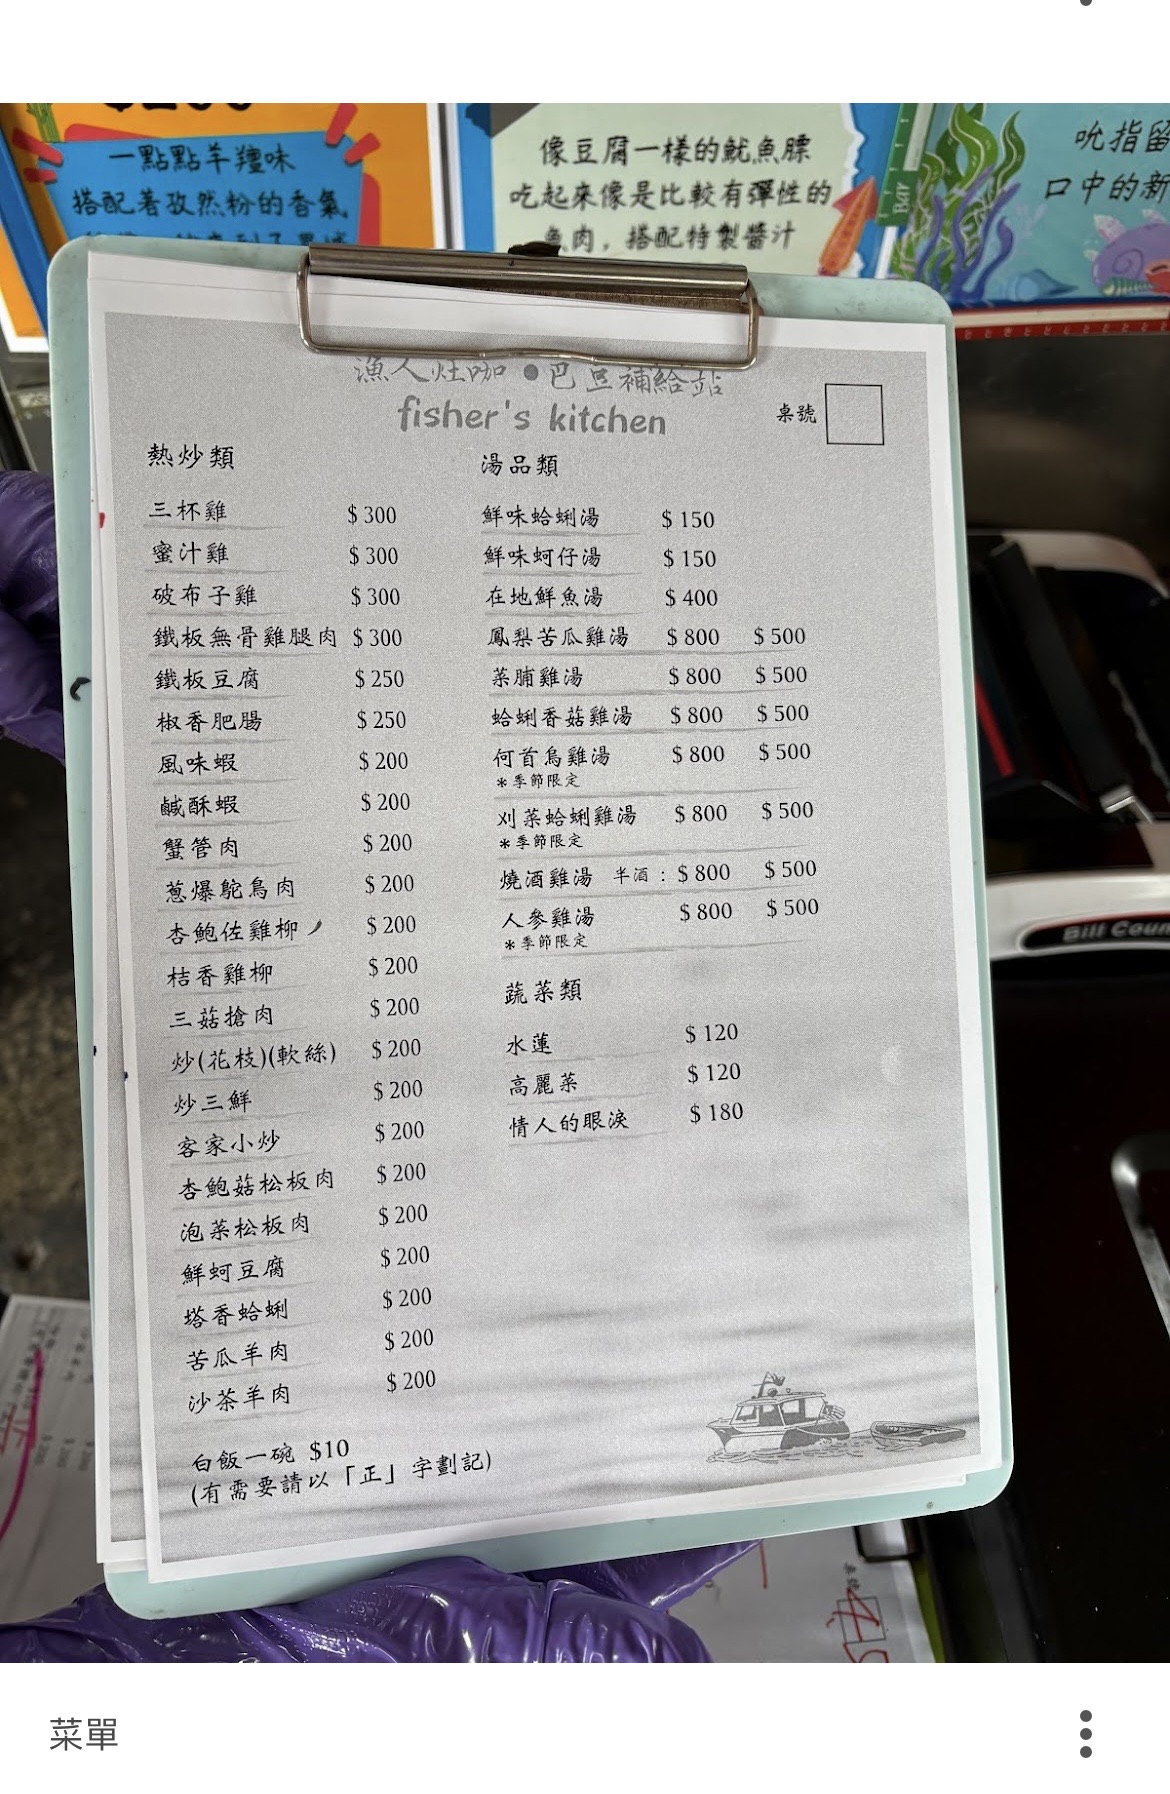 一點點羊羶味
搭配著孜然粉的香氣
像豆腐一樣的魷魚膘
吃起來像是比較有彈性的
魚肉，搭配特製醬汁
BAY
吮指留
口中的新
漁人灶咖●巴豆補給站
fisher's kitchen
桌號
熱炒類
三杯雞 $300
蜜汁雞 $300
破布子雞 $300
鐵板無骨雞腿肉 $300
鐵板豆腐 $250
椒香肥腸 $250
風味蝦 $200
鹹酥蝦 $200
蟹管肉 $200
蔥爆鴕鳥肉 $200
杏鮑佐雞柳 $200
桔香雞柳 $200
三菇搶肉 $200
炒(花枝)(軟絲) $200
炒三鮮 $200
客家小炒 $200
杏鮑菇松板肉 $200
泡菜松板肉 $200
鮮蚵豆腐 $200
塔香蛤蜊 $200
苦瓜羊肉 $200
沙茶羊肉 $200
白飯一碗 $10
(有需要請以「正」字劃記)
湯品類
鮮味蛤蜊湯 $150
鮮味蚵仔湯 $150
在地鮮魚湯 $400
鳳梨苦瓜雞湯 $800 $500
菜脯雞湯 $800 $500
蛤蜊香菇雞湯 $800 $500
何首烏雞湯 $800 $500
*季節限定
刈菜蛤蜊雞湯 $800 $500
*季節限定
燒酒雞湯 半酒：$800 $500
人參雞湯 $800 $500
*季節限定
蔬菜類
水蓮 $120
高麗菜 $120
情人的眼淚 $180
Bill Coun
菜單